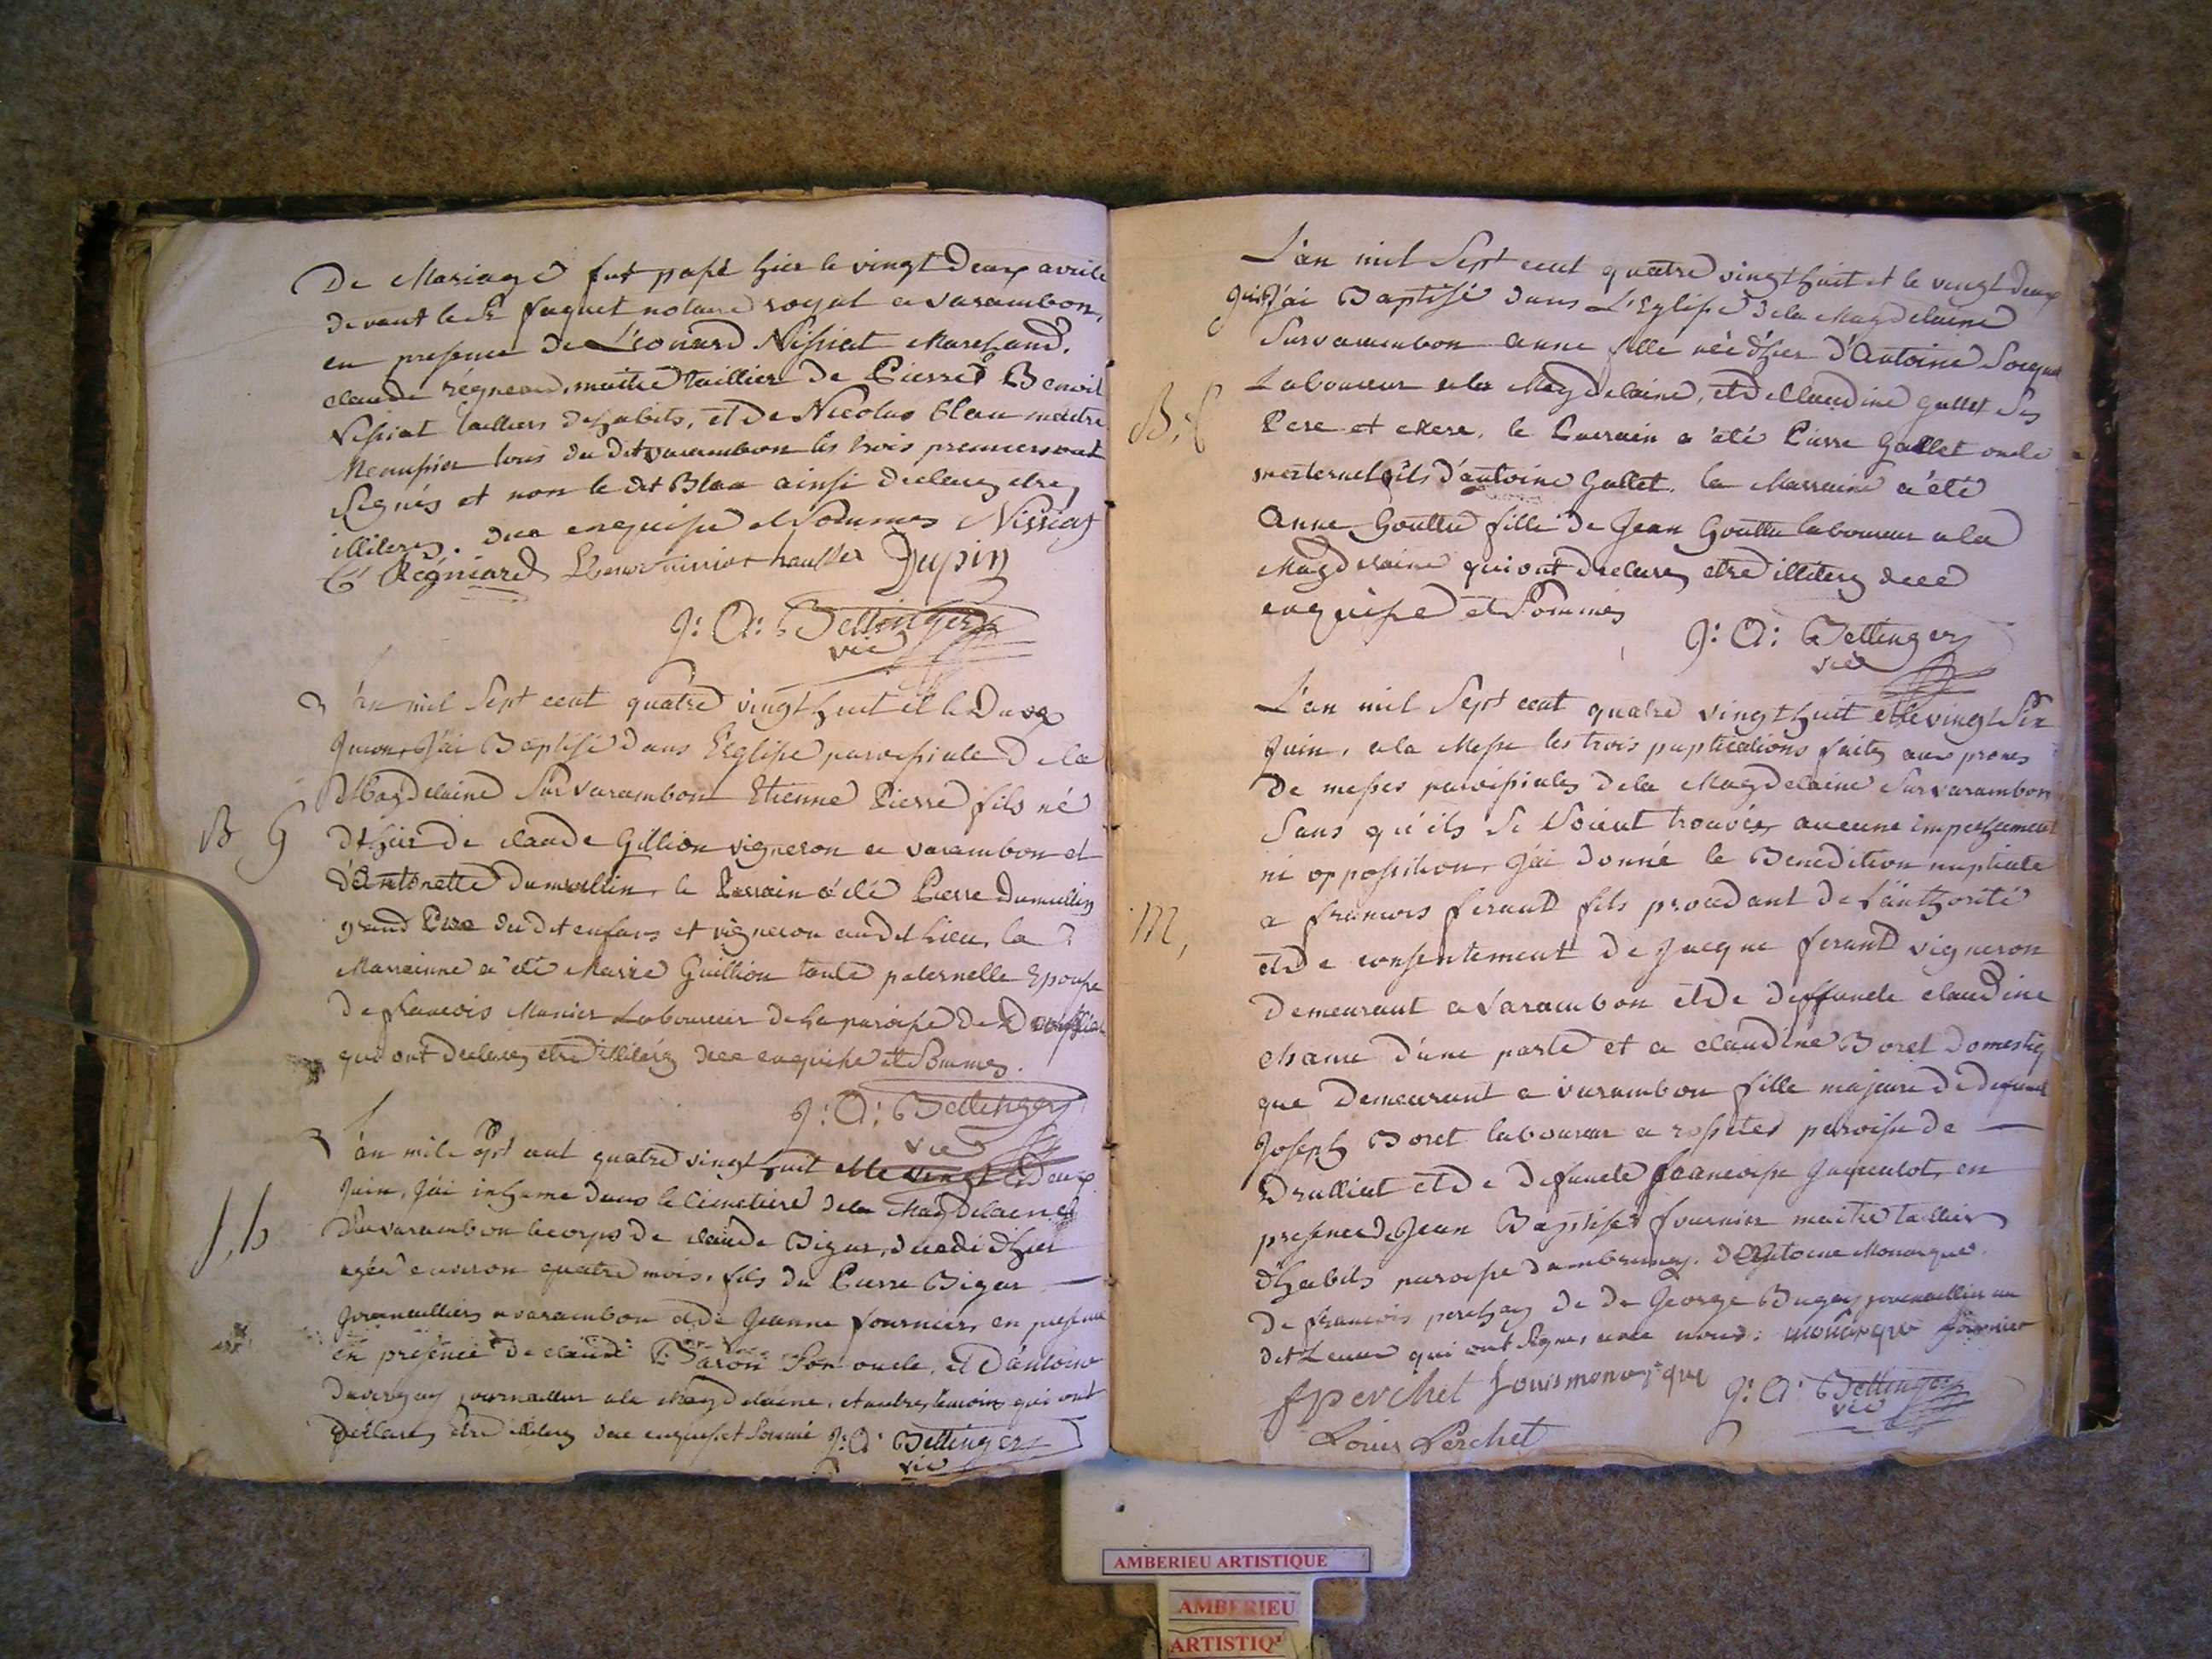 De Mariage fut passé hier le vingt Deux avrile
devant le Sr faguet notaire royal a varambon,
en presence de Léonard Nissiat Marchand,
claude régneard, maitre taillier de Pierre Benoit
Nissiat tailliers dehabits, et de Nicolas blan maitre
Menusier tous du dit varambon les trois premiers ont
Signés et non le dit Blan ainsi declarez etre
illiterez. Dee enquise et Sommes Nissiat
C Régniard Dupin
J: A: Bettinger
vic
L'an mil Sept cent quatre vingt huit et le Deux
Juin, J'ai Baptisé dans L'Eglise paroissiale De la
Magdelaine Sur varambon Etienne Pierre fils né
D'hier de claude Gillion vigneron a varambon et
D'Antonette Dumollin, le Parrain a été Pierre Dumullin
grand Pere du dit enfans et vigneron au dit Lieu, la
Marrainne a été Marie Guillion tante paternelle Epouse
De francois Munier Laboureur de la paroisse de
qui ont declarez etre illiterez Dee enquise et Sommes.
J: A: Bettinger
vic
B G
L'an mil Sept cent quatre vingt huit et le vingt Deux
Juin, J'ai inhumé dans le Cimetiere de la Magdelaine
Sur varambon le corps de claude Bigur, decedé d'hier
agée environ quatre mois, fils du Pierre Bigur
Journaillier a varambon et de Jeanne fournier, en presence
en présence de claude Baron Son oncle, et D'antoine
Duvergay journaillier a la Magdelaine, et autres temoins qui ont
declarez etre illiterez Dee enquise et Sommé J: A: Bettinger
vic
L'an mil Sept cent quatre vingt huit et le vingt Deux
Juin J'ai Baptisé dans L'Eglise de la Magdelaine
Sur varambon anne fille née d'hier d'Antoine
Laboureur a la Magdelaine, et de Claudine gallet Ses
Pere et Mere, le Parrain a été Pierre Gallet oncle
maternel fils d'antoine Gallet, la Marraine a été
Anne Gouttu fille de Jean Gouttu laboureur a la
Magdelaine qui ont declarez etre illiterez Dee
enquise et Sommes
J: A: Bettinger
vic
L'an mil Sept cent quatre vingt huit et le vingt Six
Juin, a la Messe les trois puplications faites aux prones
De messes paroissiales de la Magdelaine Sur varambon
Sans qu'ils Se Soient trouvées aucune impechement
ni opposition, J'ai donné le Benedition nuptiale
a francois ferand fils procedant de L'authorité
et de consentement de Jacque ferand vigneron
Demeurant a Varambon et de deffuncte claudine
chanu d'une parte et a claudine Boret Domestiq
que Demeurant a varambon fille majeure de defunt
Joseph Boret laboureur a rossetes paroisse de
Druilliat et de defuncte francoise Jaquenlot, en
presence de Jean Baptiste fournier maitre taillier
d'habits paroisse dambronay, D'Antoine Monarque
De francois perchay de De George Bugay journaillier au
dit Lieux qui ont Signes avec nous: monarque fournier
f perchet Louis monarque J: A: Bettinger
vic
Louis Perchet
M,
AMBERIEU ARTISTIQUE
AMBERIEU
ARTISTIQ